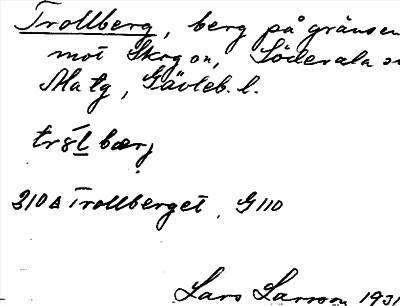 Trollberg, berg på gränsen
mot Skog sn, Söderala sn
Matg, Gävleb. l.
210 Trollberget, G 110
Lars Larsson 1931